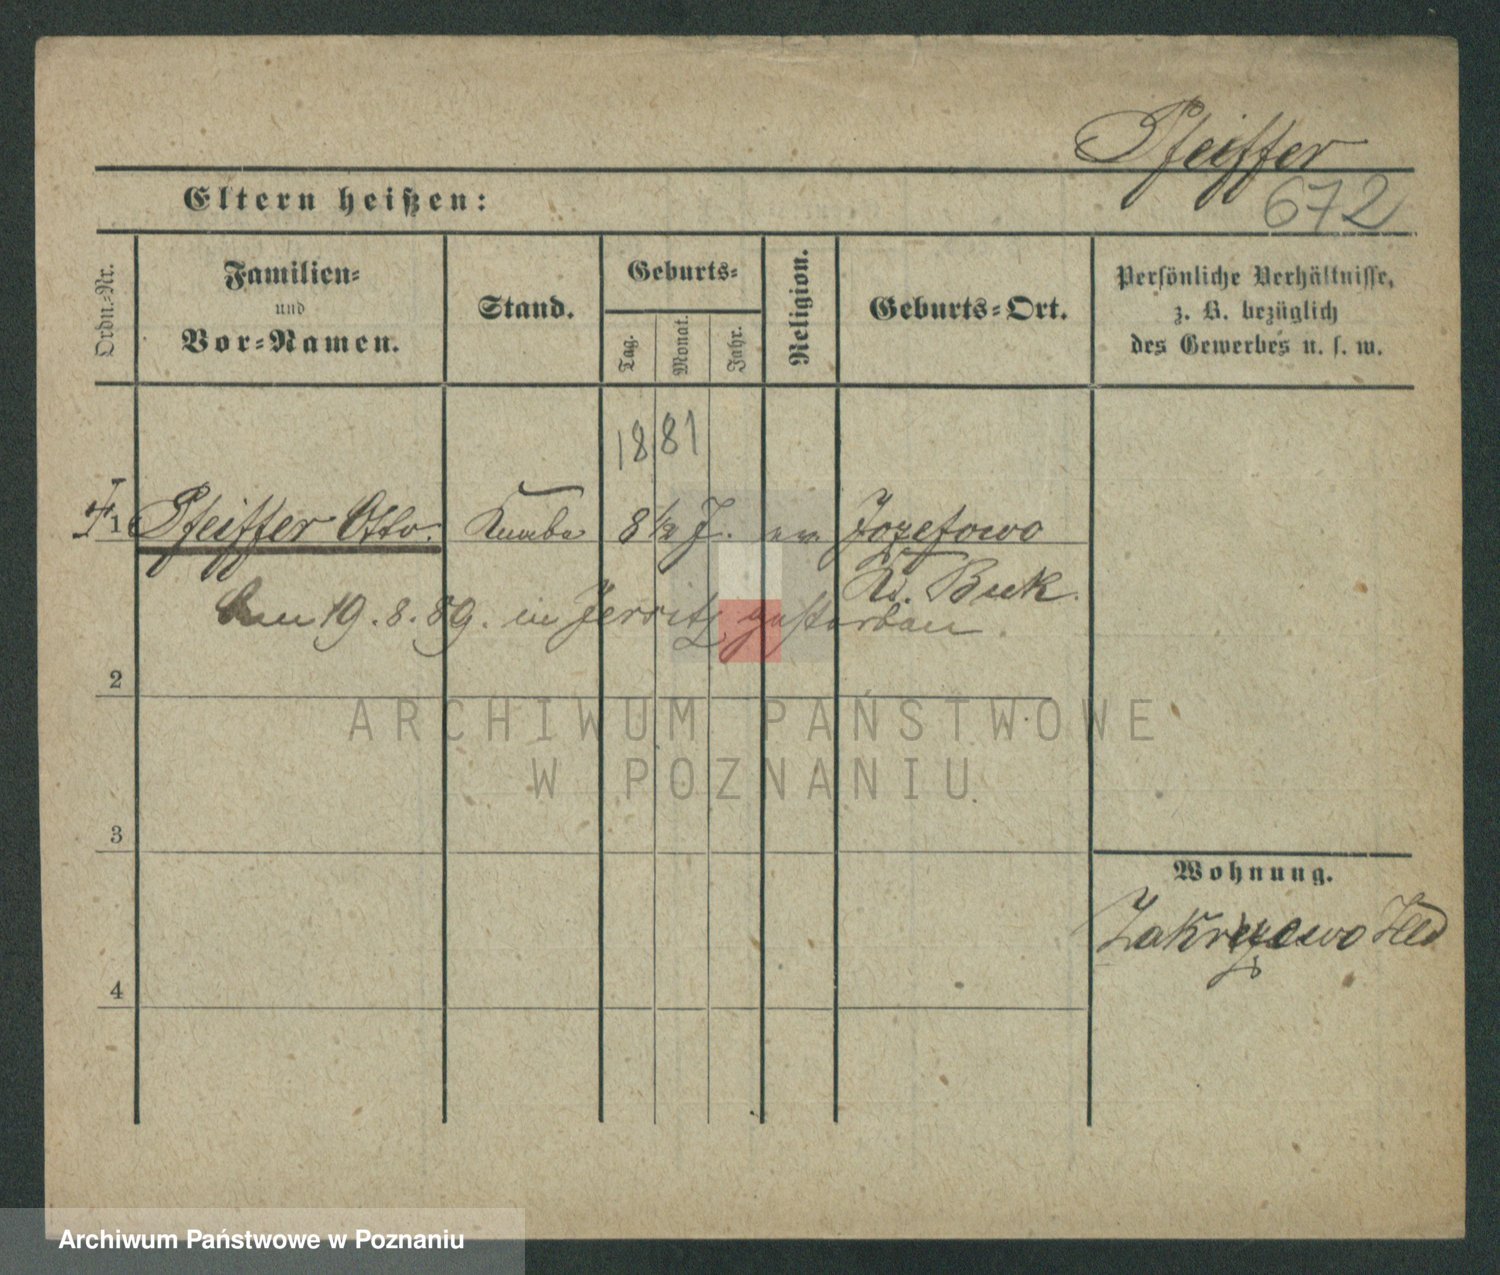 Pfeiffer
672
Eltern heißen:
Ordn.-Nr.
Familien-
und
Vor-Namen.
Stand.
Geburts-
Tag.
Monat.
Jahr.
Religion.
Geburts-Ort.
Persönliche Verhältnisse,
z. B. bezüglich
des Gewerbes u. s. w.
1881
1 Pfeiffer Otto. Knabe 8 1/2 J. ev. Jozefowo
Kr. Buk.
am 19.8.89. in Jerzitz gestorben
2
ARCHIWUM PAŃSTWOWE
W POZNANIU
3
Wohnung.
Zakrzewo Hld
4
Archiwum Państwowe w Poznaniu